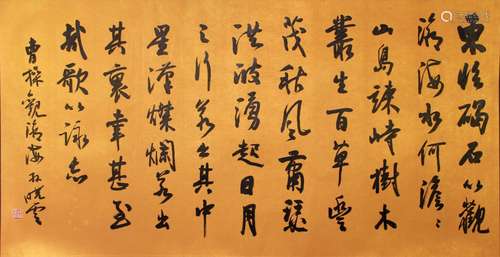 東臨碣石以觀
滄海水何澹〻
山島竦峙樹木
叢生百草豐
茂秋風蕭瑟
洪波湧起日月
之行若出其中
星漢燦爛若出
其裏幸甚至
哉歌以詠志
曹操觀滄海 孫曉雲